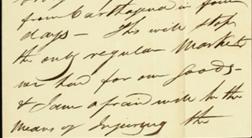 from Carthagena in four
days - this will stop
the only regular Market
we had for our Goods -
& I am afraid will be the
Means of Injuring the